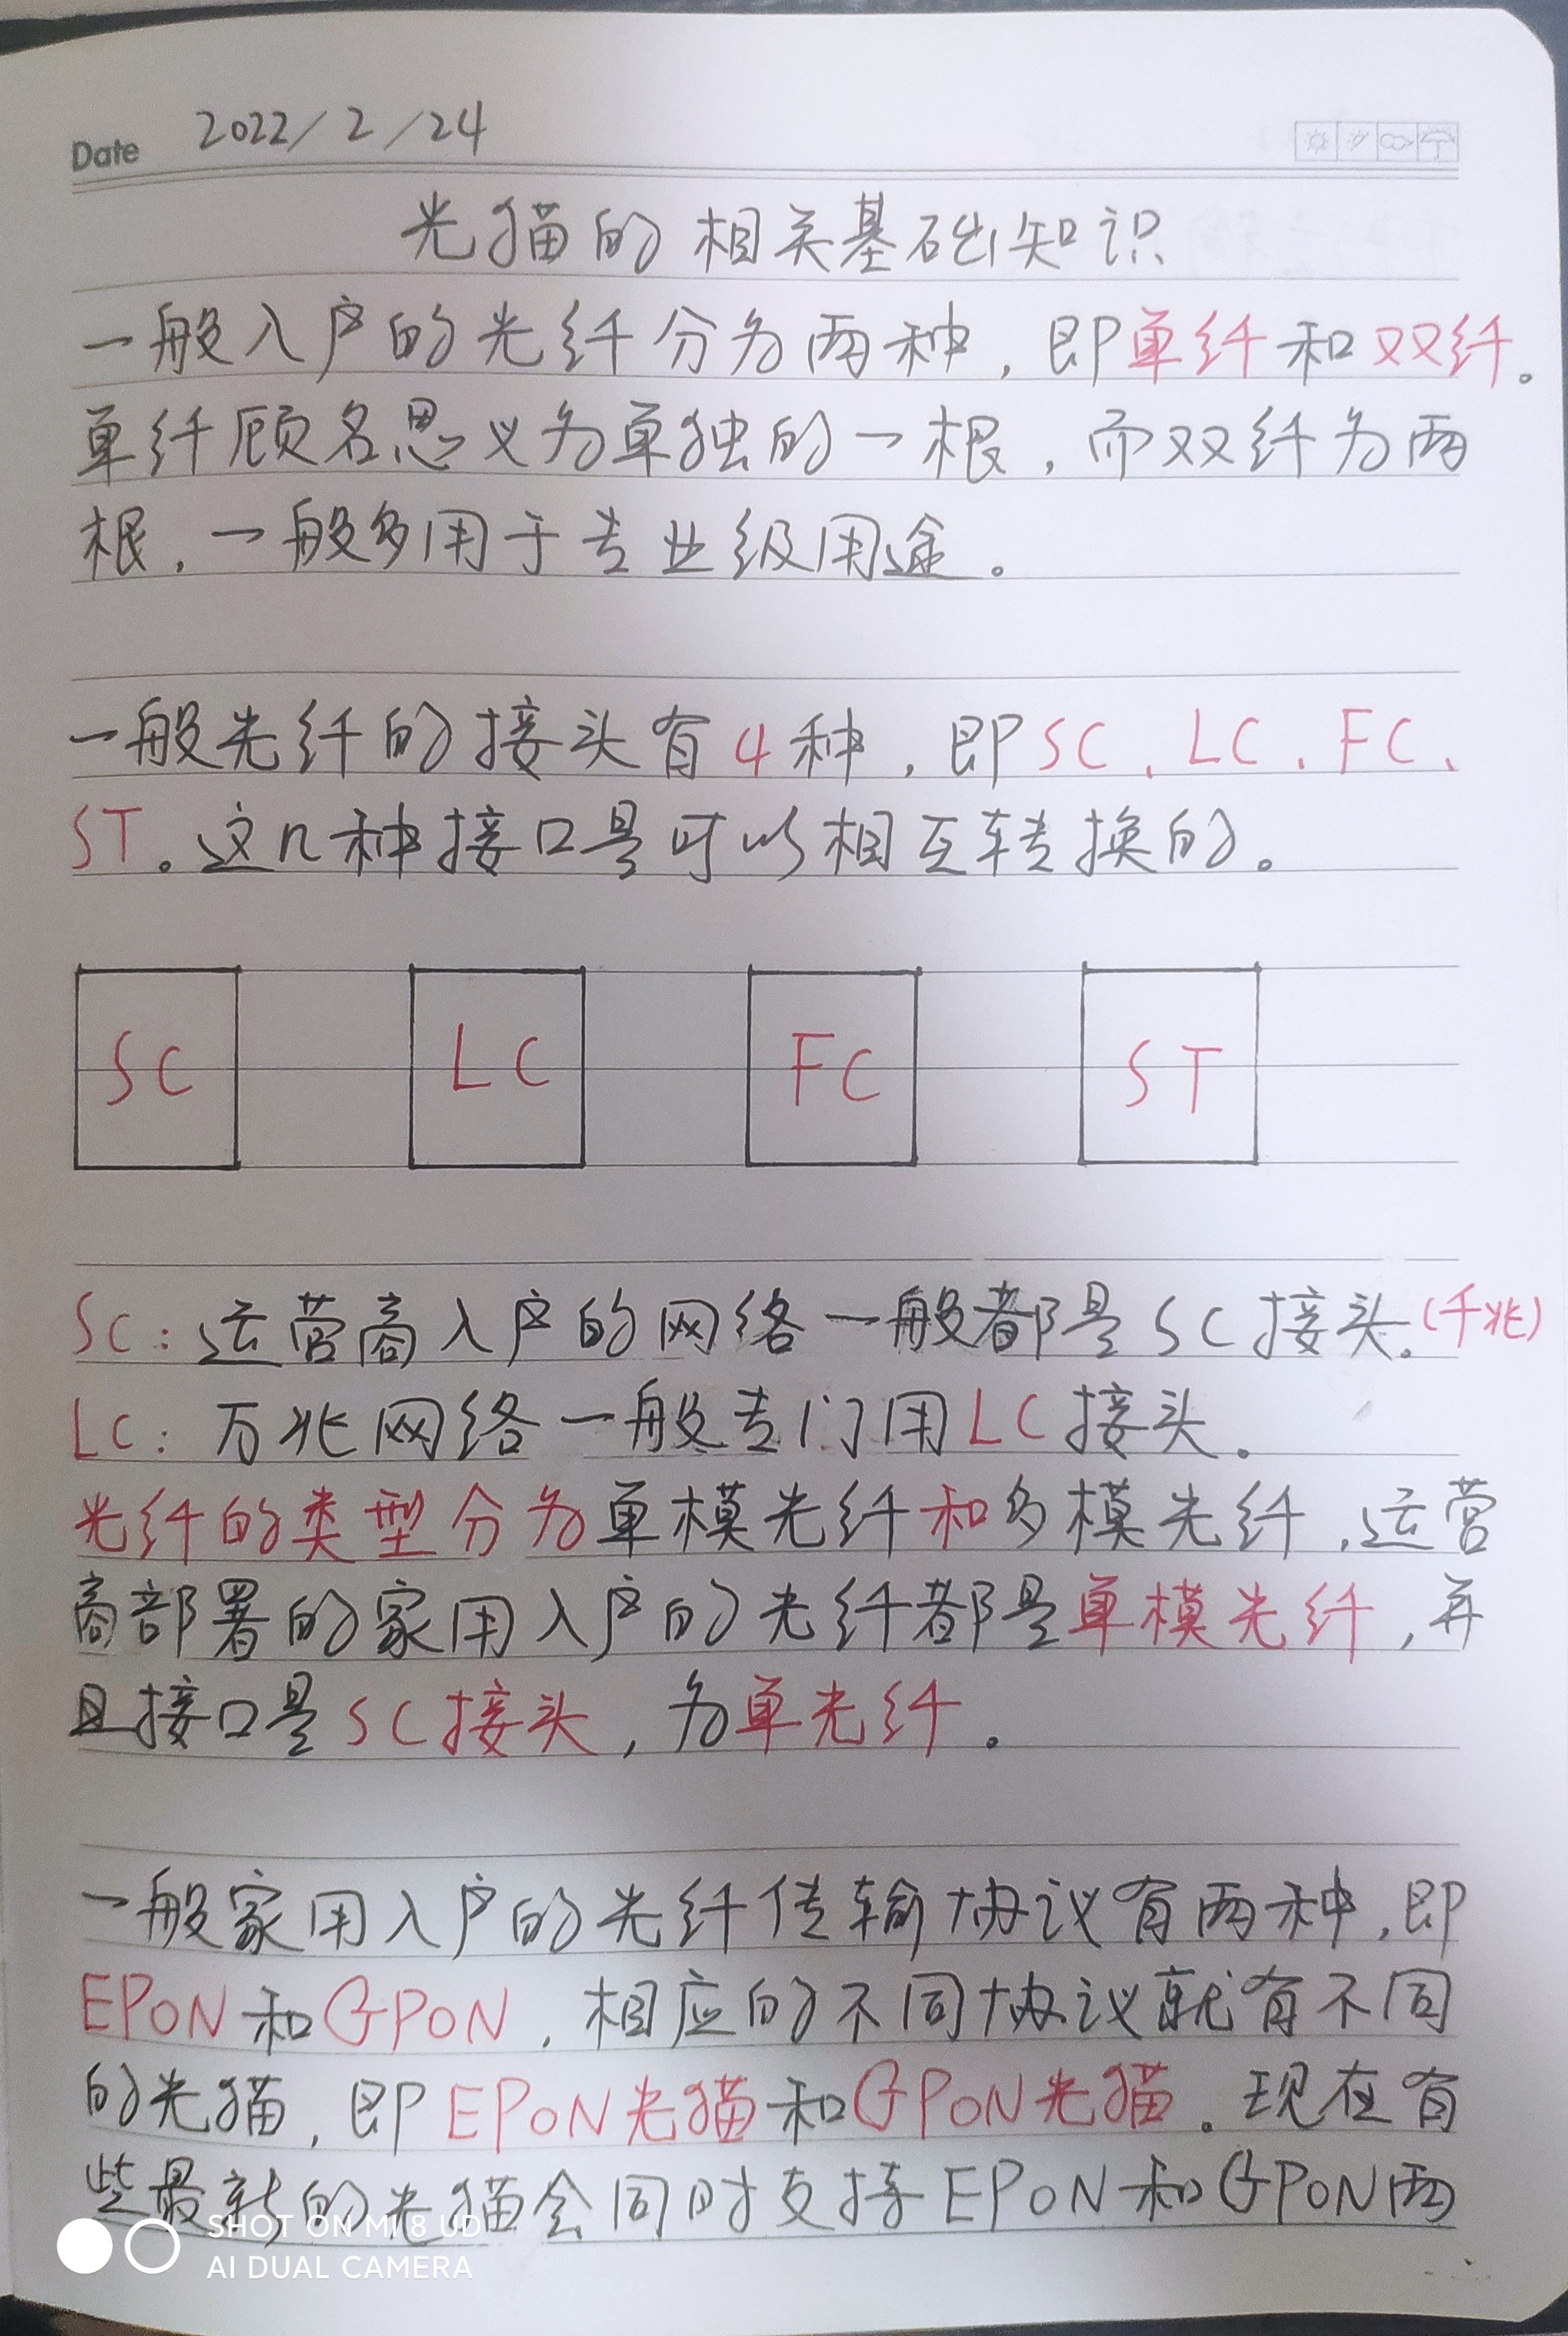 Date 2022/2/24
光猫的相关基础知识
一般入户的光纤分为两种，即单纤和双纤。
单纤顾名思义为单独的一根，而双纤为两
根，一般多用于专业级用途。
一般光纤的接头有4种，即SC、LC、FC、
ST。这几种接口是可以相互转换的。
SC LC FC ST
SC：运营商入户的网络一般都是SC接头。(千兆)
LC：万兆网络一般专门用LC接头。
光纤的类型分为单模光纤和多模光纤，运营
商部署的家用入户的光纤都是单模光纤，并
且接口是SC接头，为单光纤。
一般家用入户的光纤传输协议有两种，即
EPON和GPON，相应的不同协议就有不同
的光猫，即EPON光猫和GPON光猫。现在有
些最新的光猫会同时支持EPON和GPON两
SHOT ON MI 8 UD
AI DUAL CAMERA